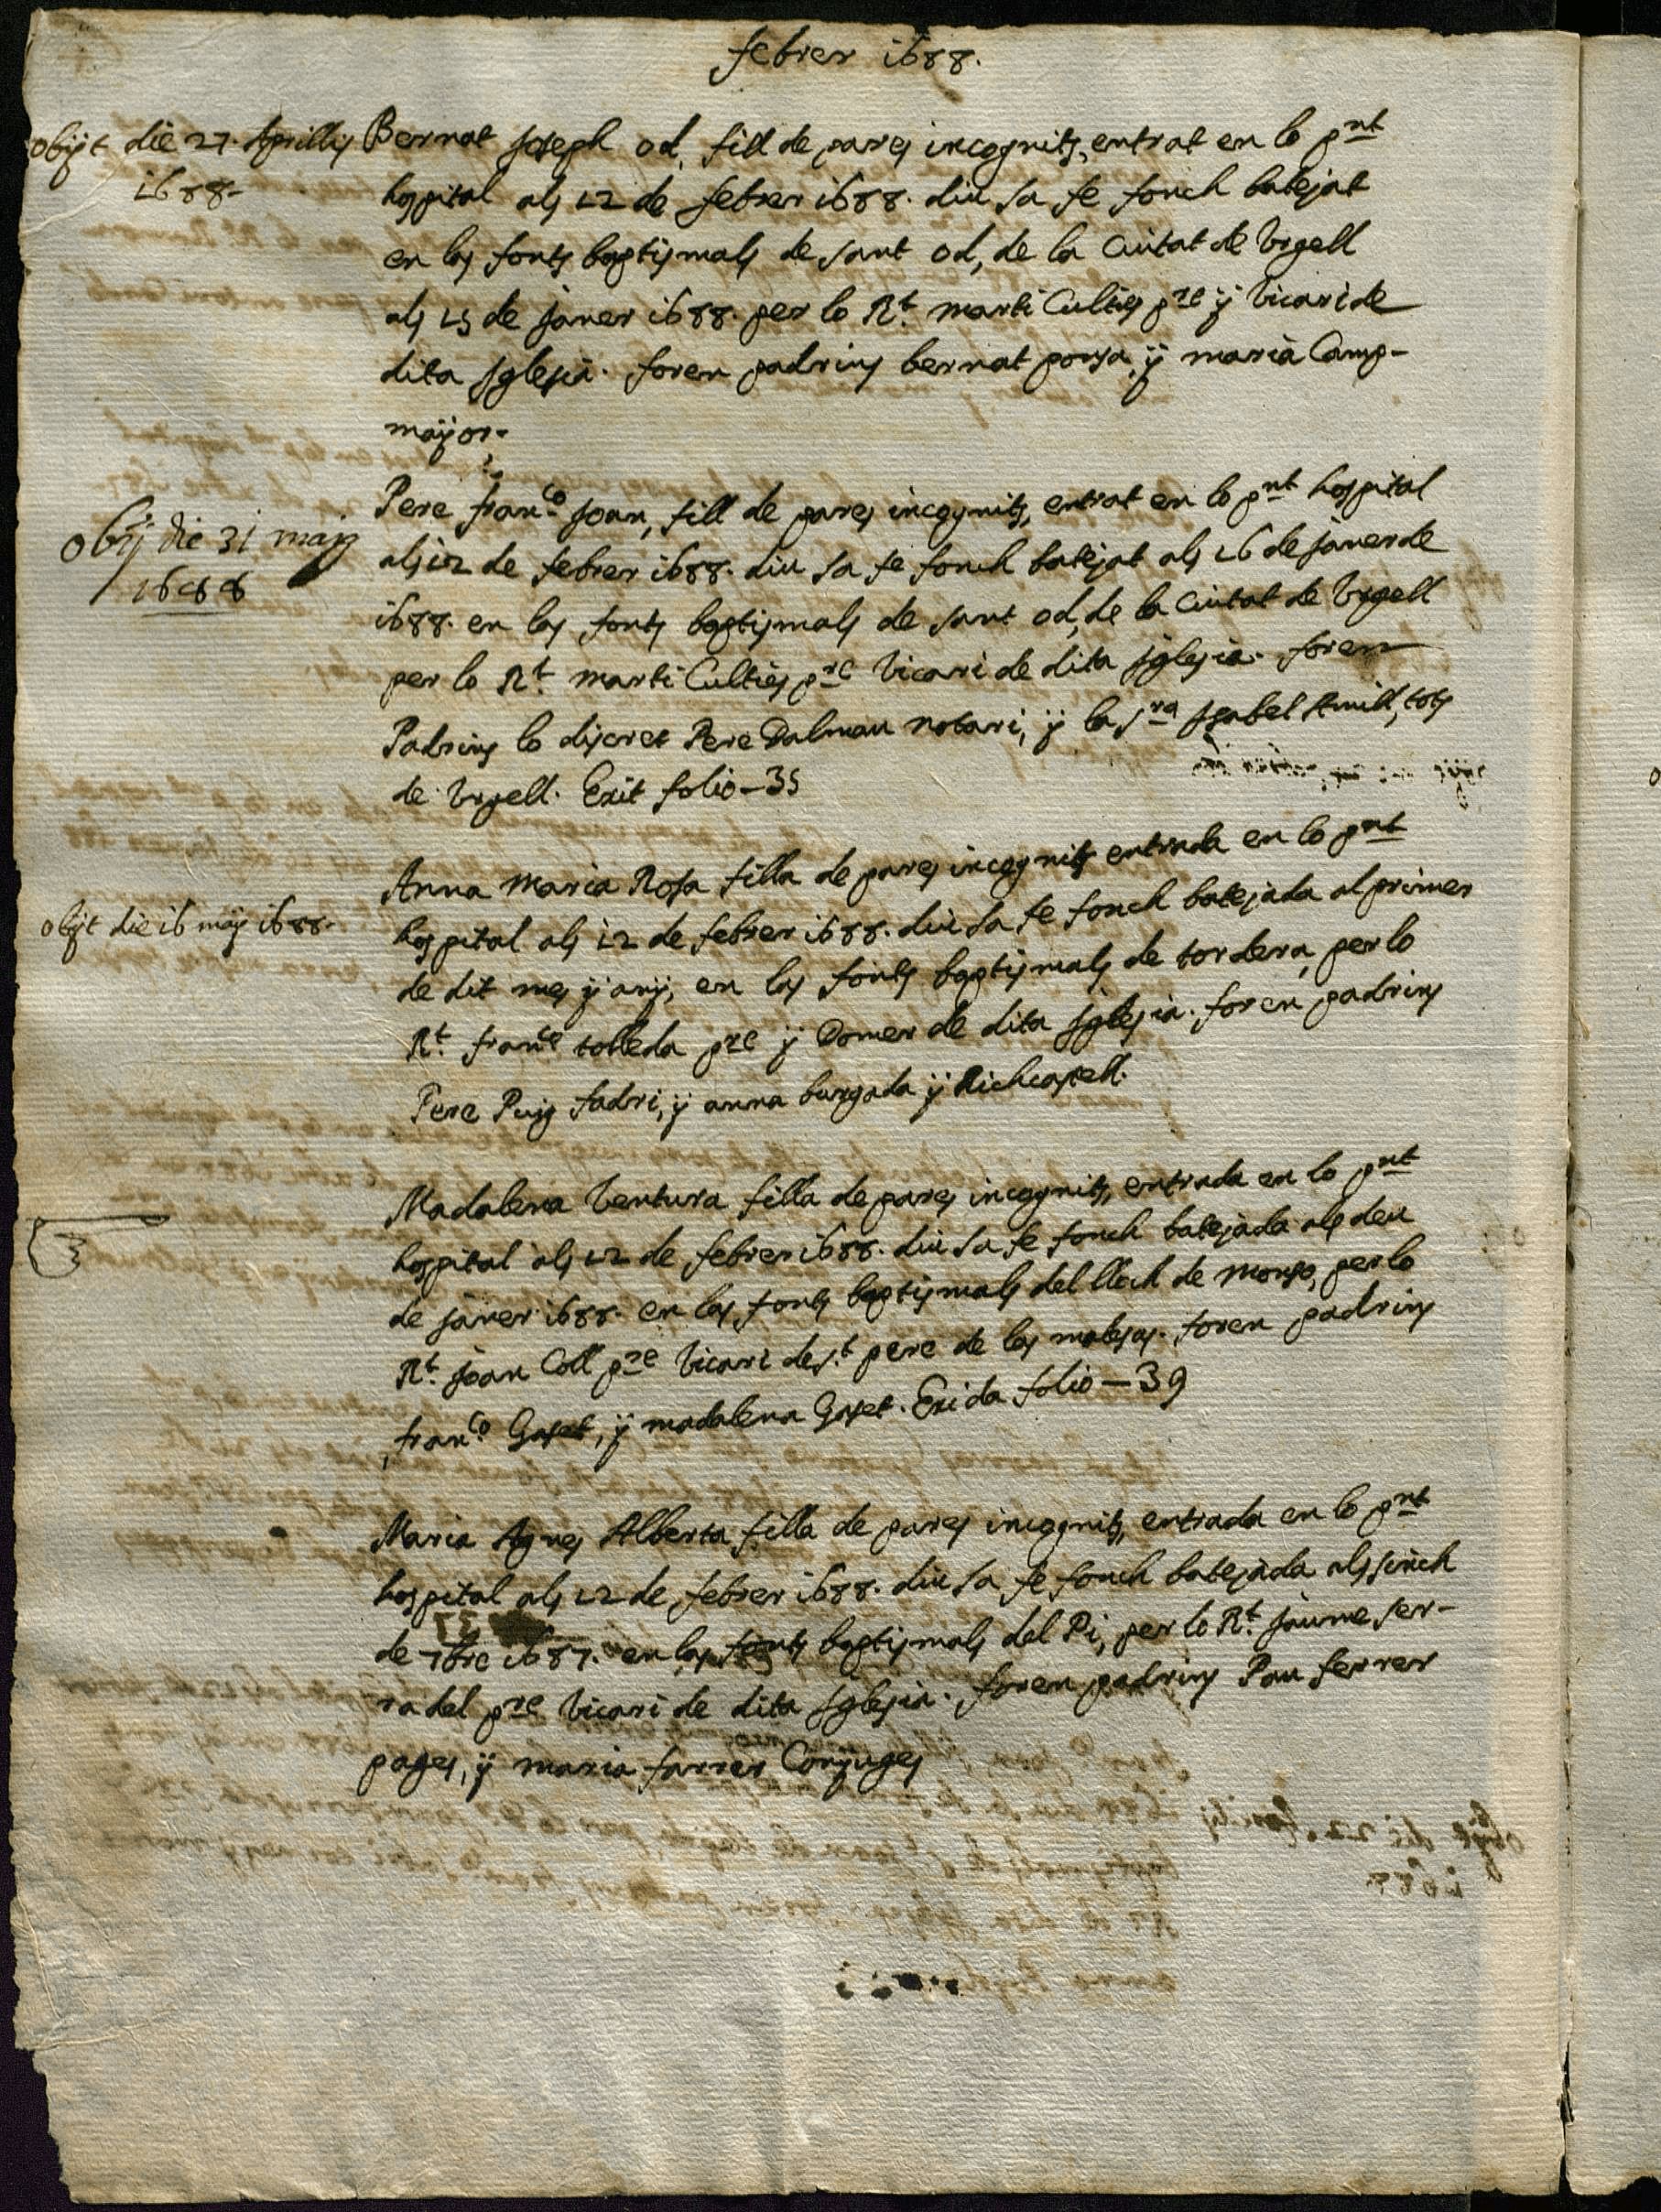 febrer 1688.
obijt die 27. Aprillis
1688.
Bernat Joseph od, fill de pares incognits, entrat en lo pnt
hospital als 12 de febrer 1688. diu sa fe fonch batejat
en las fonts baptismals de sant od, de la Ciutat de Vrgell
als 15 de janer 1688. per lo Rt. marti Culties pre ÿ Vicari de
dita Iglesia. foren padrins bernat ponsa, ÿ maria Camp-
maÿor.
Obÿ die 31 maÿ
1688
Pere franco. Joan, fill de pares incognits, entrat en lo pnt hospital
als 12 de febrer 1688. diu sa fe fonch batejat als 16 de janer de
1688. en las fonts baptismals de sant od, de la Ciutat de Vrgell
per lo Rt. marti Culties pre Vicari de dita Iglesia. foren
Padrins lo discret Pere Dalmau notari, ÿ la sra Isabel Amill, tots
de Vrgell. Exit folio - 35
obijt die 16 maÿ 1688.
Anna Maria Rosa filla de pares incognits entrada en lo pnt
hospital als 12 de febrer 1688. diu sa fe fonch batejada al primer
de dit mes ÿ anÿ, en las fonts baptismals de tordera, per lo
Rt. francc tolleda pre ÿ Domer de dita Iglesia. foren padrins
Pere Puig fadri, ÿ anna burgada ÿ Richcapell.
Madalena Ventura filla de pares incognits, entrada en lo pnt
hospital als 12 de febrer 1688. diu sa fe fonch batejada als deu
de janer 1688. en las fonts baptismals del lloch de monso, per lo
Rt. joan Coll pre Vicari de s.t pere de las malesas. foren padrins
franco. Gaset, ÿ madalena Gaset. Exida folio - 39
Maria Agnes Alberta filla de pares incognits, entrada en lo pnt
hospital als 12 de febrer 1688. diu sa fe fonch batejada als sinch
de 7bre 1687. en las fonts baptismals del Pi, per lo Rt. jaume ser-
radel pre Vicari de dita Iglesia. foren padrins Pau ferrer
pages, ÿ maria farrer Conjuges